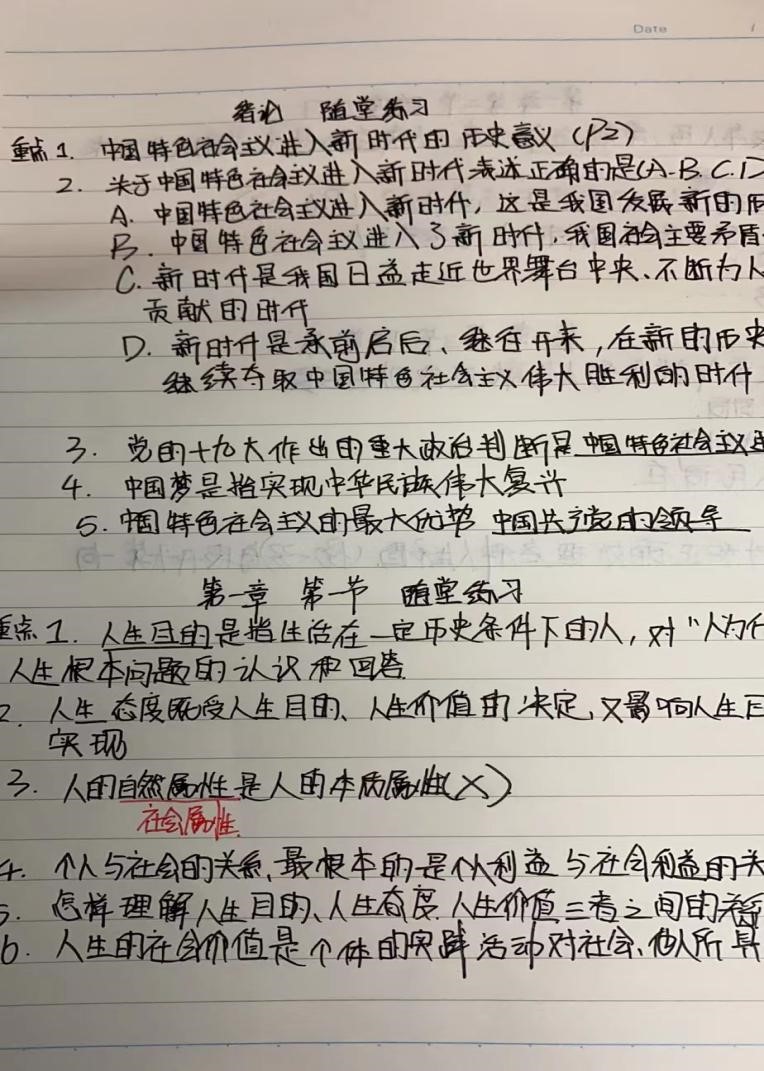 Date
绪论 随堂练习
重点 1. 中国特色社会主义进入新时代的历史意义 (P2)
2. 关于中国特色社会主义进入新时代表述正确的是(A.B.C.D
A. 中国特色社会主义进入新时代,这是我国发展新的历
B. 中国特色社会主义进入了新时代,我国社会主要矛盾
C. 新时代是我国日益走近世界舞台中央、不断为人
贡献的时代
D. 新时代是承前启后、继往开来,在新的历史
继续夺取中国特色社会主义伟大胜利的时代
3. 党的十九大作出的重大政治判断是中国特色社会主义进
4. 中国梦是指实现中华民族伟大复兴
5. 中国特色社会主义的最大优势 中国共产党的领导
第一章 第一节 随堂练习
重点 1. 人生目的是指生活在一定历史条件下的人,对"人为什
人生根本问题的认识和回答
2. 人生态度既受人生目的、人生价值的决定,又影响人生目
实现
3. 人的自然属性是人的本质属性(×)
社会属性
4. 个人与社会的关系,最根本的是个人利益与社会利益的关
5. 怎样理解人生目的、人生态度、人生价值三者之间的关系
6. 人生的社会价值是个体的实践活动对社会、他人所具